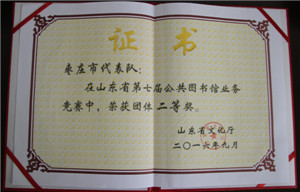 证书
枣庄市代表队：
在山东省第七届公共图书馆业务
竞赛中，荣获团体二等奖。
山东省文化厅
二〇一六年九月